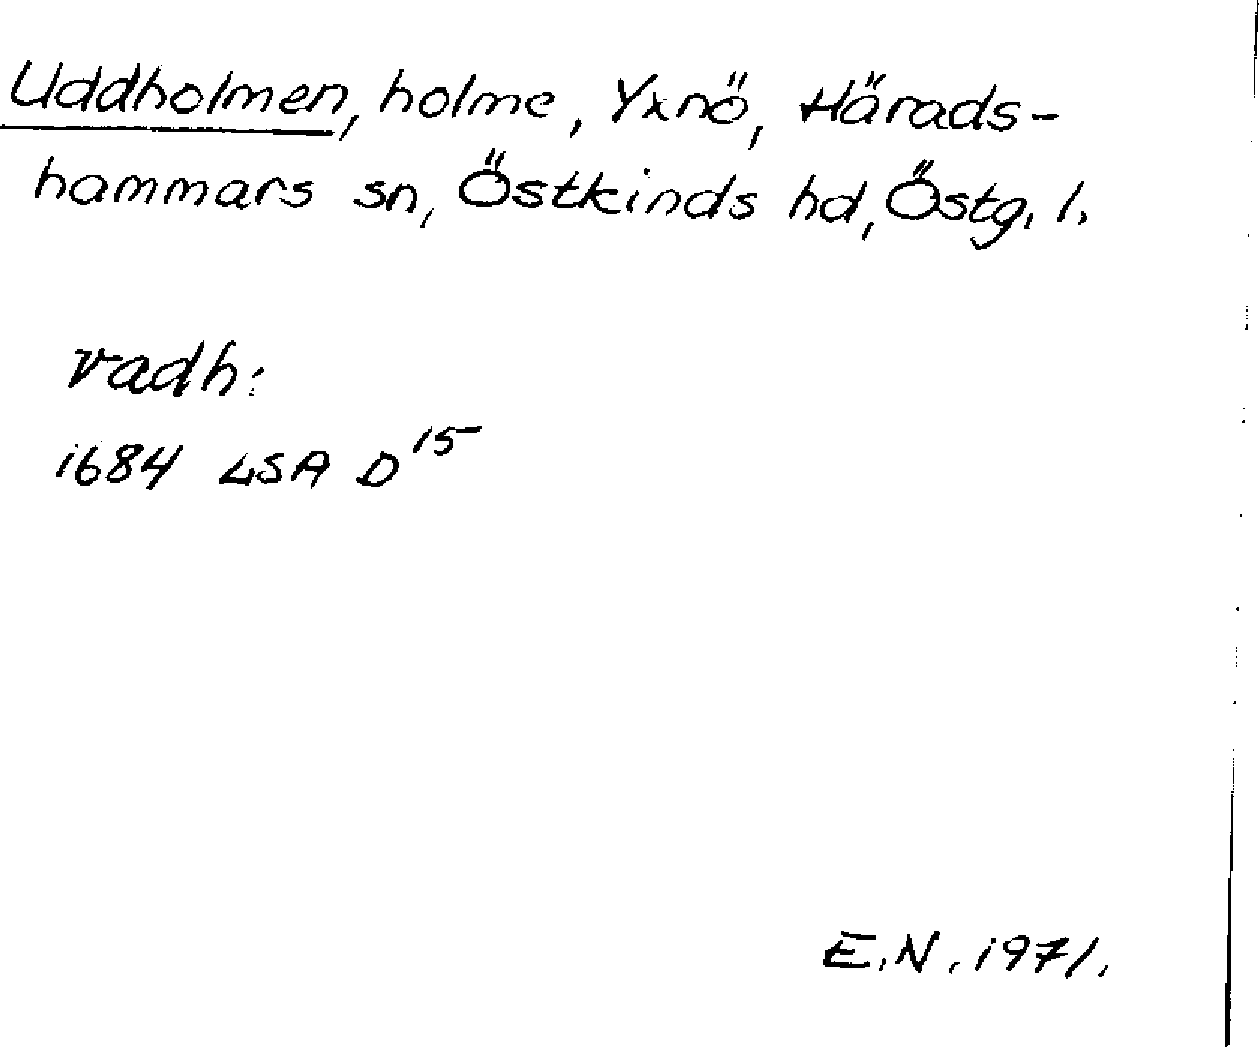 Uddholmen, holme, Yxnö, Härads-
hammars sn, Östkinds hd, Östg. l.
vadh:
1684 LSA D 15
E.N. 1971.